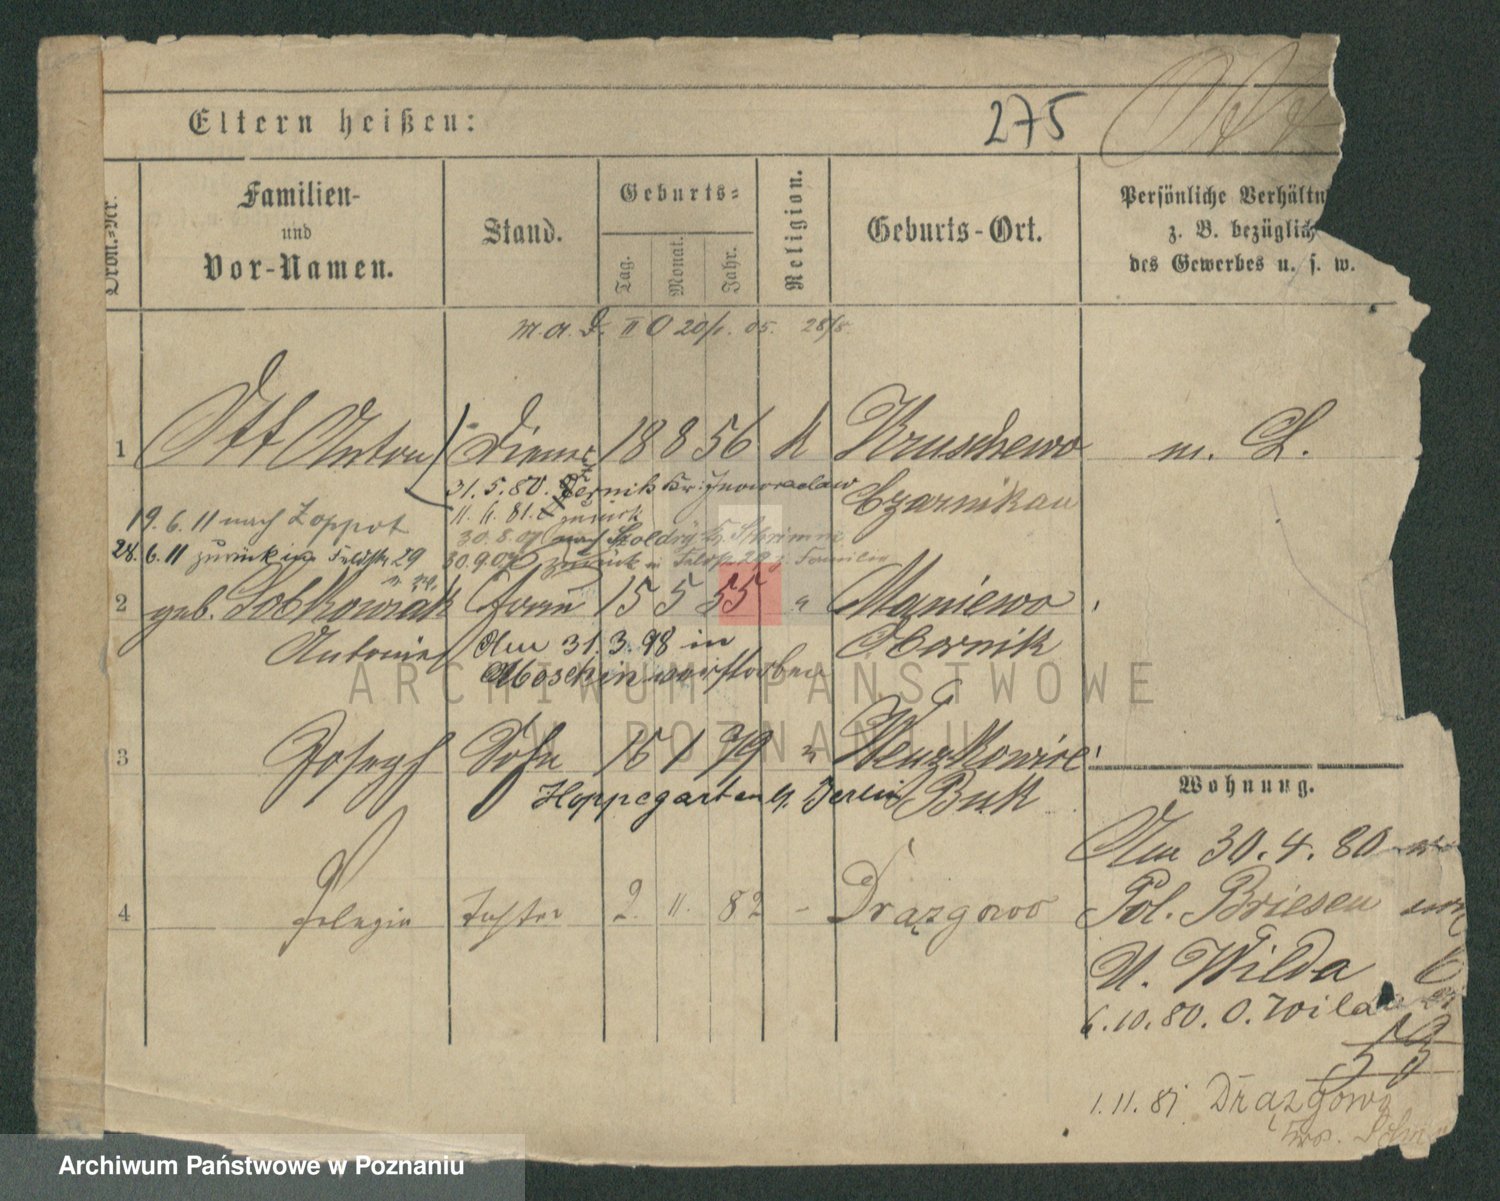 Eltern heißen:
275
Ordn.-Nr.
Familien-
und
Vor-Namen.
Stand.
Geburts-
Tag.
Monat.
Jahr.
Religion.
Geburts-Ort.
Persönliche Verhältn
z. B. bezüglich
des Gewerbes u. s. w.
m a. d. II 0 20/1. 05. 28/8.
1 Ott Anton Diener 18 8 56 k Kruschewo m. L.
31.5.80. Kr. Inowraclaw Czarnikau
19.6.11 nach Zoppot 11.11.81. zurück
30.8.07 nach Szoldry Kr. Schrimm
28.6.11 zurück in Feldstr 29 30.9.07 zurück n Feldstr. 29 z. Familie
2 geb. Sobkowiak Frau 15 5 55 " Maniewo
Antonie Am 31.3.98 in Obornik
Moschin verstorben
3 Joseph Sohn 16 1 79 "
Hoppegarten b. Berlin Buk
Wohnung.
Am 30.4.80
4 Pelagia Tochter 2. 11. 82 - Drązgowo
Pol. Briesen
U. Wilda 6
6.10.80. O. Wilda
53
1.11.81 Drązgowo
ARCHIWUM PAŃSTWOWE
W POZNANIU
Archiwum Państwowe w Poznaniu